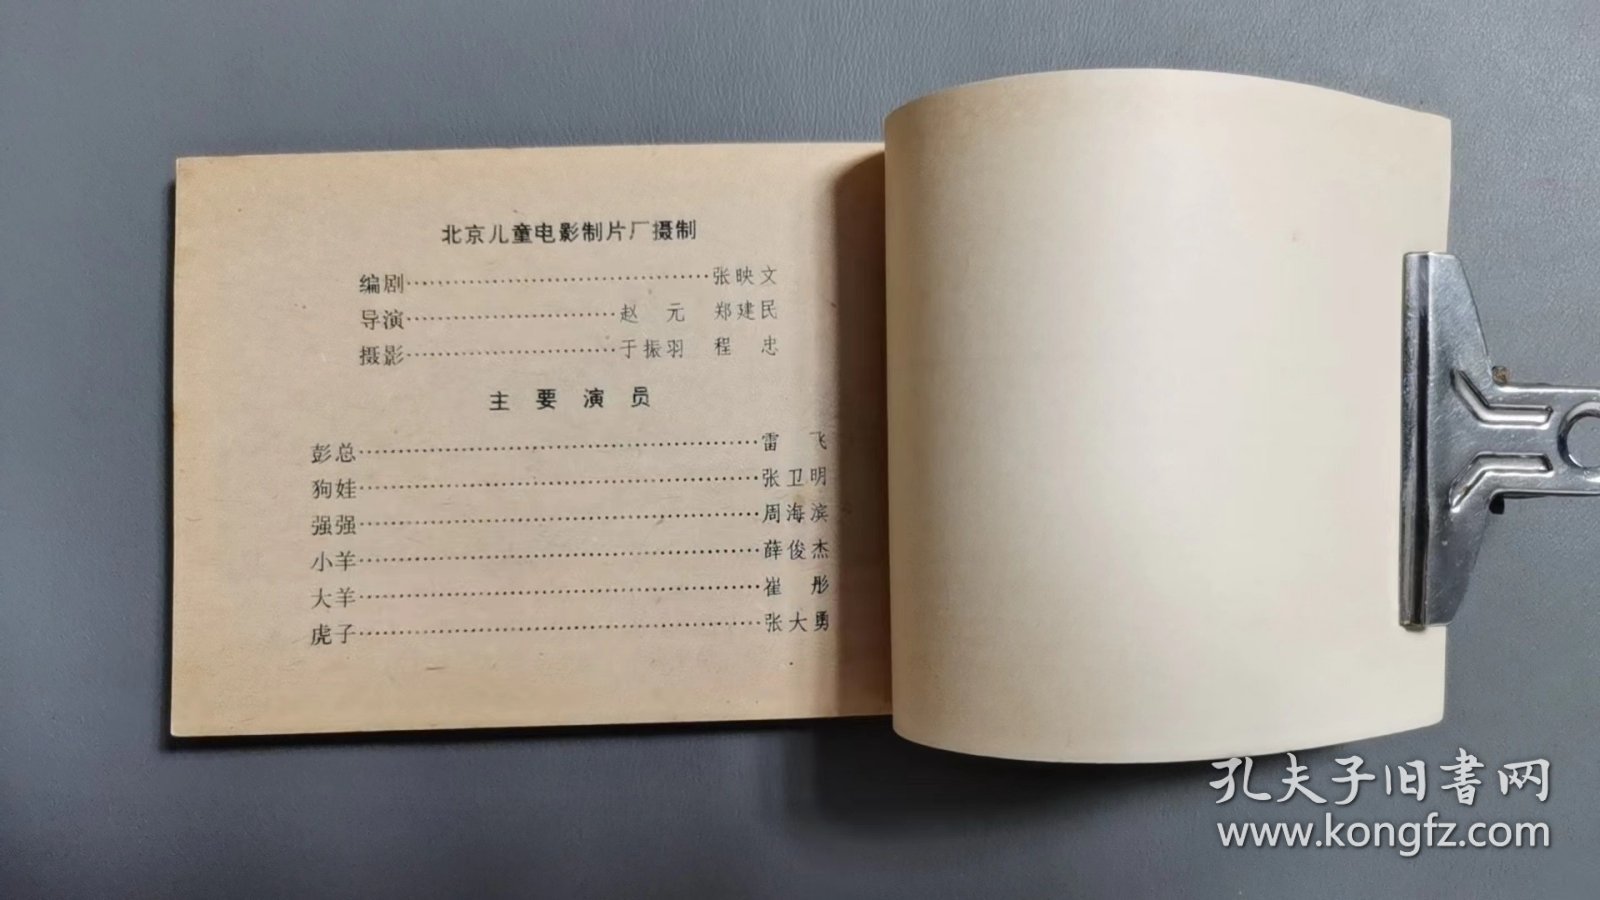 北京儿童电影制片厂摄制
编剧……………………………………张映文
导演…………………………赵 元 郑建民
摄影…………………………于振羽 程 忠
主要演员
彭总……………………………………………雷 飞
狗娃……………………………………………张卫明
强强……………………………………………周海滨
小羊……………………………………………薛俊杰
大羊……………………………………………崔 彤
虎子……………………………………………张大勇
孔夫子旧书网
www.kongfz.com